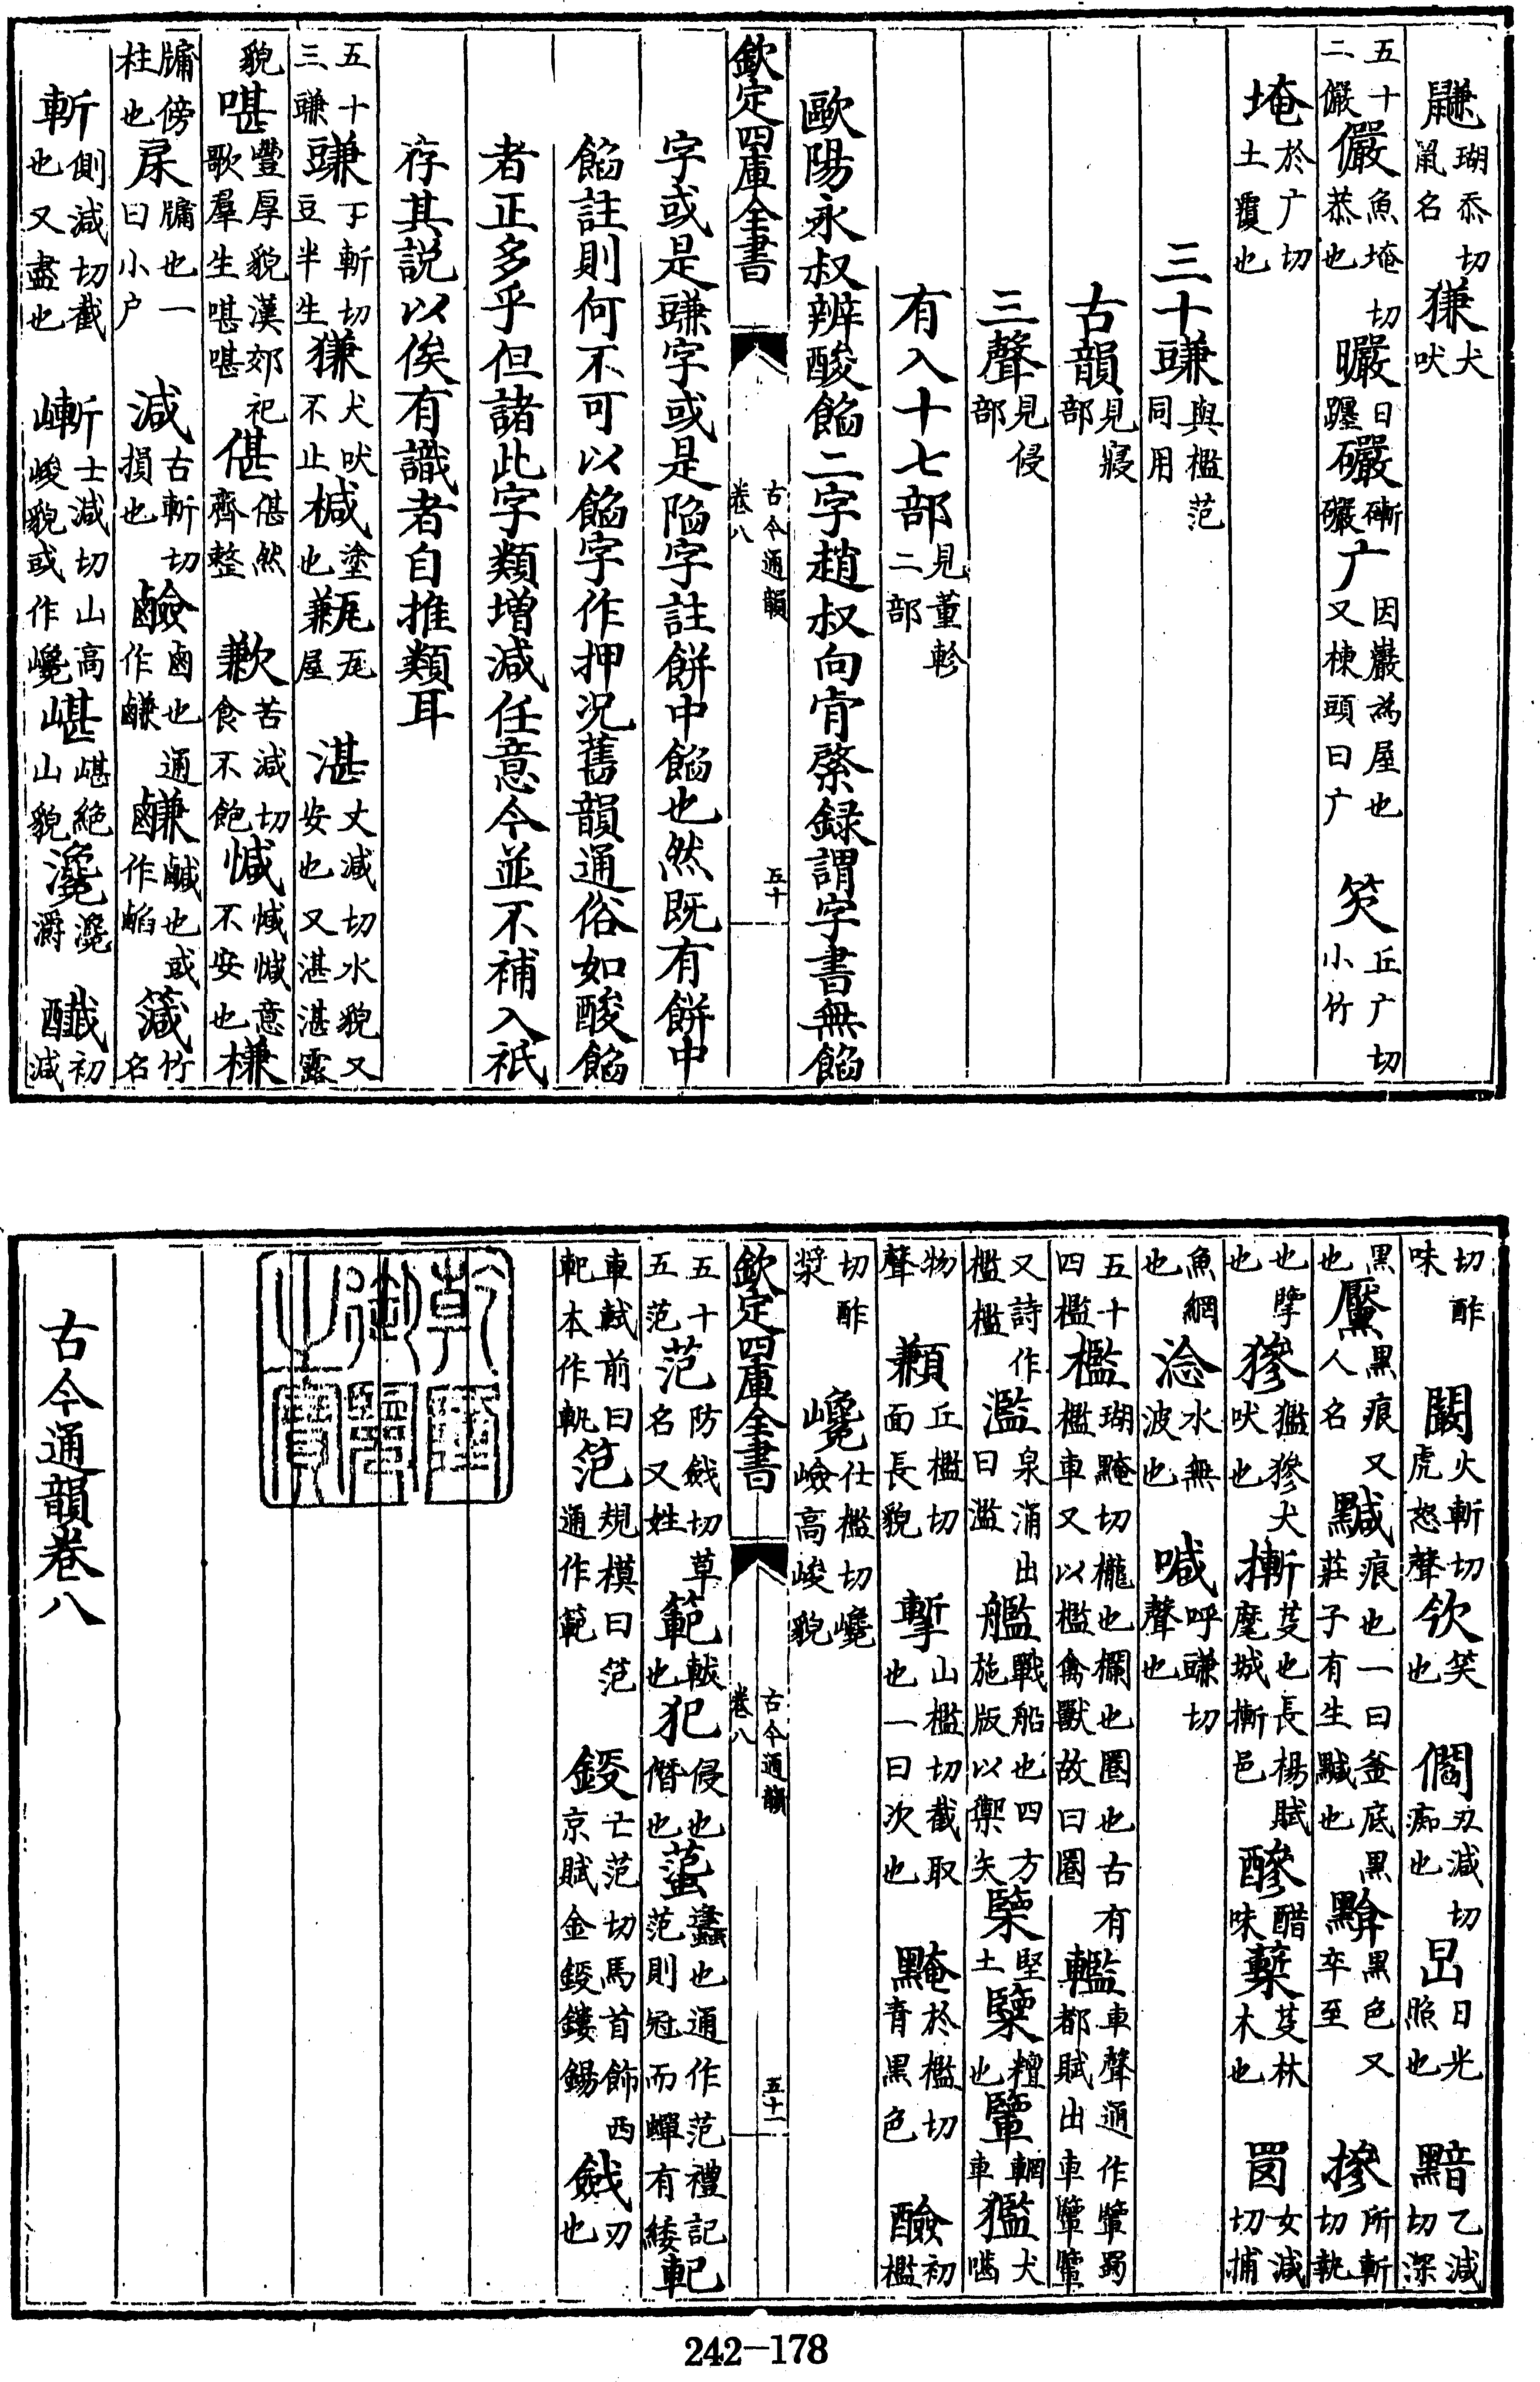 鼸瑚忝切鼠名 㺌犬吠
五十二儼 儼魚埯切恭也 曮日躔 礹磛礹 广因巖為屋也又棟頭曰广 㰦丘广切小竹
埯於广切土覆也
三十豏與檻范同用
古韻見寢部
三聲見侵部
有入十七部見董軫二部
歐陽永叔辨酸餡二字趙叔向肯綮録謂字書無餡
欽定四庫全書
古今通韻
卷八
五十
字或是豏字或是陷字註餅中餡也然既有餅中
餡註則何不可以餡字作押况舊韻通俗如酸餡
者正多乎但諸此字類增減任意今並不補入祇
存其説以俟有識者自推類耳
五十三豏 豏下斬切豆半生 㺌犬吠不止 椷塗也 㼓瓦屋 湛丈減切水貌又安也又湛湛露
貌 啿豐厚貌漢郊祀歌羣生啿啿 偡偡然齊整 歉苦減切食不飽 㦑㦑㦑意不安也 槏
牖傍柱也 㦿牖也一曰小户 減古斬切損也 鹼鹵也通作鹻 鹻鹹也或作䤘 箴竹名
斬側減切截也又盡也 嶄士減切山高峻貌或作巉 嵁嵁絶山貌 瀺瀺灂 醶初減
切酢味 闞火斬切虎怒聲 欦笑也 㒈丑減切痴也 昌日光照也 黯乙減切深
黑也 黶黑痕又人名 黬痕也一曰釜底黑莊子有生黬也 黭黑色又卒至 摻所斬切執
也擥也 㺑㺌㺑犬吠也 摲芟也長楊賦麾城摲邑 醦醋味 槧芟林木也 㘝女減切捕
魚網也 淰水無波也 喊呼豏切聲也
五十四檻 檻瑚黤切櫳也欄也圈也古有檻車又以檻禽獸故曰圈 轞車聲通作檻蜀都賦出車檻檻
又詩作檻檻 濫泉涌出曰濫 艦戰船也四方施版以禦矢 㯺堅土 糮糮也 轞輞車 㺝犬噛
物聲 顩丘檻切面長貌 摲山檻切截取也一曰次也 黤於檻切青黑色 醶初檻
切酢漿 巉仕檻切巉嶮高峻貌
欽定四庫全書
古今通韻
卷八
五十一
五十五范 范防錽切草名又姓 範軷也 犯侵也僭也 䗊蠭也通作范禮記范則冠而蟬有緌 軓
車軾前曰軓本作軌 笵規模曰笵通作範 錽亡范切馬首飾西京賦金錽鏤鍚 㪁刃也
乾隆御覽之寶
古今通韻卷八
242-178